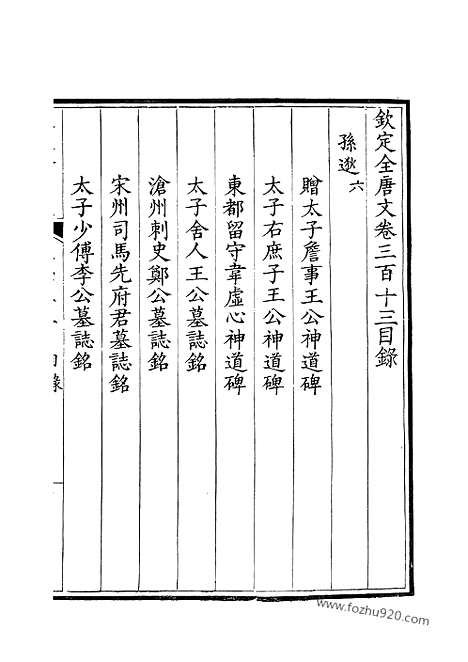 欽定全唐文卷三百十三目錄
孫逖六
贈太子詹事王公神道碑
太子右庶子王公神道碑
東都留守韋虛心神道碑
太子舍人王公墓誌銘
滄州刺史鄭公墓誌銘
宋州司馬先府君墓誌銘
太子少傅李公墓誌銘
www.fozhu920.com